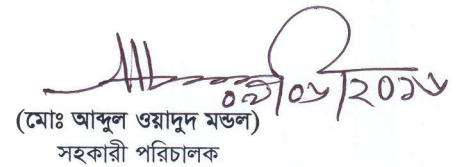 ০৯/০৮/২০১৮
(মোঃ আব্দুল ওয়াদুদ মন্ডল)
সহকারী পরিচালক